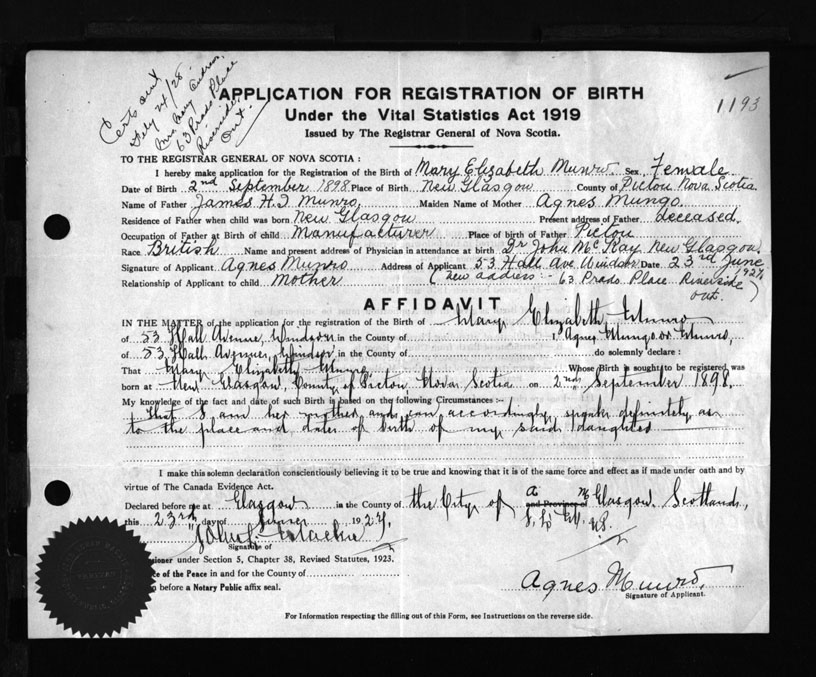 Cert. sent
Feby 24/28
Mrs Mary
63 Prado Place
Riverside,
Ont.
1193
APPLICATION FOR REGISTRATION OF BIRTH
Under the Vital Statistics Act 1919
Issued by The Registrar General of Nova Scotia.
TO THE REGISTRAR GENERAL OF NOVA SCOTIA :
I hereby make application for the Registration of the Birth of Mary Elizabeth Munro. Sex Female
Date of Birth 2nd September 1898 Place of Birth New Glasgow County of Pictou Nova Scotia
Name of Father James H. Munro, Maiden Name of Mother Agnes Mungo.
Residence of Father when child was born New Glasgow Present address of Father deceased.
Occupation of Father at Birth of child Manufacturer Place of birth of Father Pictou
Race British Name and present address of Physician in attendance at birth Dr John McKay New Glasgow.
Signature of Applicant Agnes Munro Address of Applicant 53 Hall Ave Windsor Date 23rd June
Relationship of Applicant to child Mother (new address :- 63 Prado Place Riverside Ont.)
AFFIDAVIT
IN THE MATTER of the application for the registration of the Birth of Mary Elizabeth Munro
of 53 Hall Avenue, Windsor in the County of I, Agnes Mungo or Munro,
of 53 Hall Avenue, Windsor in the County of do solemnly declare :
That Mary Elizabeth Munro Whose Birth is sought to be registered, was
born at New Glasgow, County of Pictou Nova Scotia on 2nd September 1898.
My knowledge of the fact and date of such Birth is based on the following Circumstances :-
That I am her mother and can accordingly speak definitely as
to the place and date of birth of my said daughter
I make this solemn declaration conscientiously believing it to be true and knowing that it is of the same force and effect as if made under oath and by
virtue of The Canada Evidence Act.
Declared before me at Glasgow in the County of the City of and Province of Glasgow, Scotland,
this 23rd day of June 1927,
Signature of
ssioner under Section 5, Chapter 38, Revised Statutes, 1923.
ce of the Peace in and for the County of
before a Notary Public affix seal.
Agnes Munro.
Signature of Applicant.
For Information respecting the filling out of this Form, see Instructions on the reverse side.